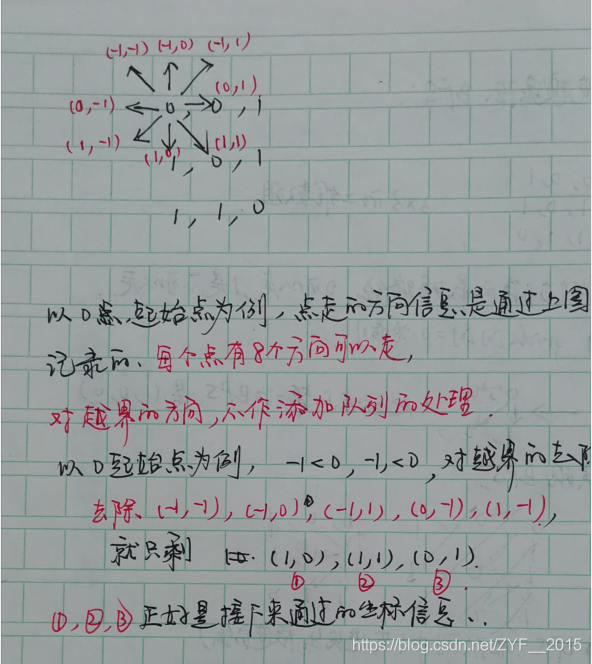 (-1,-1) (-1,0) (-1,1)
(0,1)
(0,-1) 0, 0, 1
(1,-1) (1,0) (1,1)
1, 0, 1
1, 1, 0
以0点起始点为例,点走的方向信息是通过上图
记录的.每个点有8个方向可以走,
对越界的方向,不作添加队列的处理.
以0起始点为例, -1<0, -1<0,对越界的去除
去除(-1,-1),(-1,0),(-1,1),(0,-1),(1,-1),
就只剩 (1,0),(1,1),(0,1).
① ② ③
①,②,③正好是接下来通过的坐标信息..
https://blog.csdn.net/ZYF__2015